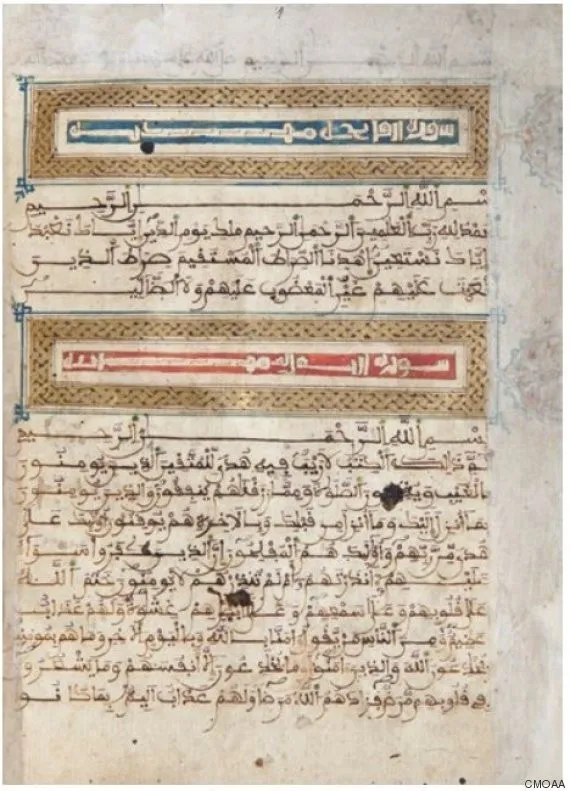 بسم الله الرحمن الرحيم
سورة
بسم الله الرحمن الرحيم
الحمد لله رب العلمين الرحمن الرحيم ملك يوم الدين اياك نعبد
واياك نستعين اهدنا الصراط المستقيم صراط الذين
انعمت عليهم غير المغضوب عليهم ولا الضالين
سورة
بسم الله الرحمن الرحيم
الم ذلك الكتب لا ريب فيه هدى للمتقين الذين يومنون
بالغيب ويقيمون الصلوة ومما رزقنهم ينفقون والذين يومنون
بما انزل اليك وما انزل من قبلك وبالاخرة هم يوقنون اوليك على
هدى من ربهم واوليك هم المفلحون ان الذين كفروا سواء
عليهم ءانذرتهم ام لم تنذرهم لا يومنون ختم الله
على قلوبهم وعلى سمعهم وعلى ابصرهم غشوة ولهم عذاب
عظيم ومن الناس من يقول امنا بالله وباليوم الاخر وما هم بمومنين
يخدعون الله والذين امنوا وما يخدعون الا انفسهم وما يشعرون
في قلوبهم مرض فزادهم الله مرضا ولهم عذاب اليم بما كانوا
CMOAA